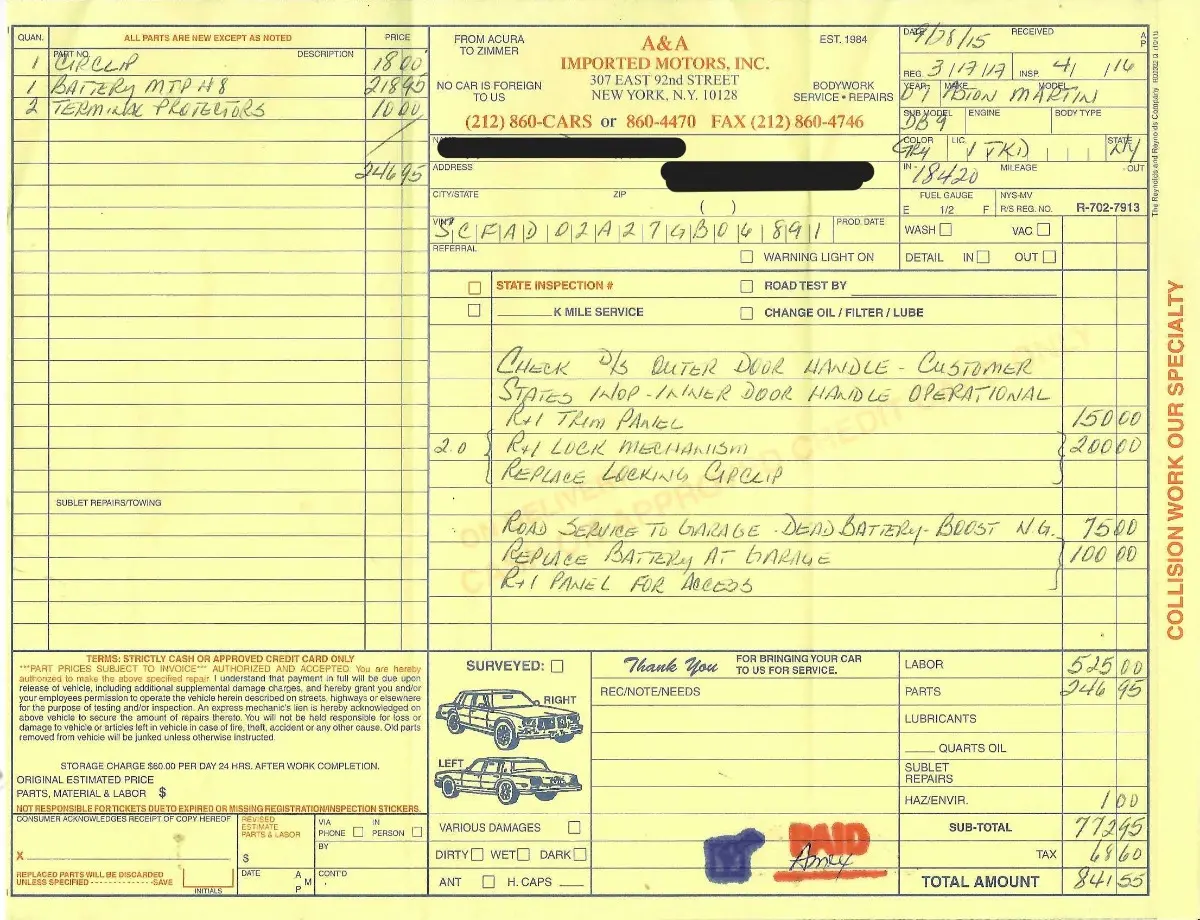 QUAN. ALL PARTS ARE NEW EXCEPT AS NOTED PRICE
PART NO. DESCRIPTION
1 CIRCLIP 18 00
1 BATTERY MTP H8 218 95
2 TERMINAL PROTECTORS 10 00
246 95
SUBLET REPAIRS/TOWING
FROM ACURA TO ZIMMER
NO CAR IS FOREIGN TO US
A&A
IMPORTED MOTORS, INC.
307 EAST 92nd STREET
NEW YORK, N.Y. 10128
EST. 1984
BODYWORK
SERVICE • REPAIRS
(212) 860-CARS or 860-4470 FAX (212) 860-4746
NAME
ADDRESS
CITY/STATE ZIP
( )
VIN# SCFAD02A27GB06891 PROD. DATE
REFERRAL
WARNING LIGHT ON
DATE 9/28/15 RECEIVED A P
REG. 3/17/17 INSP. 4/ /16
YEAR 07 MAKE MODEL ASTON MARTIN
SUB MODEL DB9 ENGINE BODY TYPE
COLOR GRY LIC. 1 TKD STATE NY
IN - 18420 MILEAGE - OUT
FUEL GAUGE NYS-MV
E 1/2 F R/S REG. NO. R-702-7913
WASH VAC
DETAIL IN OUT
STATE INSPECTION # ROAD TEST BY
K MILE SERVICE CHANGE OIL / FILTER / LUBE
CHECK D/S OUTER DOOR HANDLE - CUSTOMER
STATES INOP - INNER DOOR HANDLE OPERATIONAL
R+I TRIM PANEL 150 00
2.0 R+I LOCK MECHANISM 200 00
REPLACE LOCKING CIRCLIP
ROAD SERVICE TO GARAGE - DEAD BATTERY - BOOST N.G. 75 00
REPLACE BATTERY AT GARAGE 100 00
R+I PANEL FOR ACCESS
COLLISION WORK OUR SPECIALTY
TERMS: STRICTLY CASH OR APPROVED CREDIT CARD ONLY
***PART PRICES SUBJECT TO INVOICE*** AUTHORIZED AND ACCEPTED. You are hereby
authorized to make the above specified repair. I understand that payment in full will be due upon
release of vehicle, including additional supplemental damage charges, and hereby grant you and/or
your employees permission to operate the vehicle herein described on streets, highways or elsewhere
for the purpose of testing and/or inspection. An express mechanic's lien is hereby acknowledged on
above vehicle to secure the amount of repairs thereto. You will not be held responsible for loss or
damage to vehicle or articles left in vehicle in case of fire, theft, accident or any other cause. Old parts
removed from vehicle will be junked unless otherwise instructed.
STORAGE CHARGE $60.00 PER DAY 24 HRS. AFTER WORK COMPLETION.
ORIGINAL ESTIMATED PRICE
PARTS, MATERIAL & LABOR $
NOT RESPONSIBLE FOR TICKETS DUE TO EXPIRED OR MISSING REGISTRATION/INSPECTION STICKERS.
CONSUMER ACKNOWLEDGES RECEIPT OF COPY HEREOF
X
REPLACED PARTS WILL BE DISCARDED
UNLESS SPECIFIED - - - - - - - - - - - - -SAVE
INITIALS
REVISED ESTIMATE PARTS & LABOR
$
VIA PHONE IN PERSON
BY
DATE A M P CONT'D
SURVEYED:
RIGHT
LEFT
VARIOUS DAMAGES
DIRTY WET DARK
ANT H. CAPS
Thank You FOR BRINGING YOUR CAR TO US FOR SERVICE.
REC/NOTE/NEEDS
PAID
Amex
LABOR 525 00
PARTS 246 95
LUBRICANTS
QUARTS OIL
SUBLET REPAIRS
HAZ/ENVIR. 1 00
SUB-TOTAL 772 95
TAX 68 60
TOTAL AMOUNT 841 55